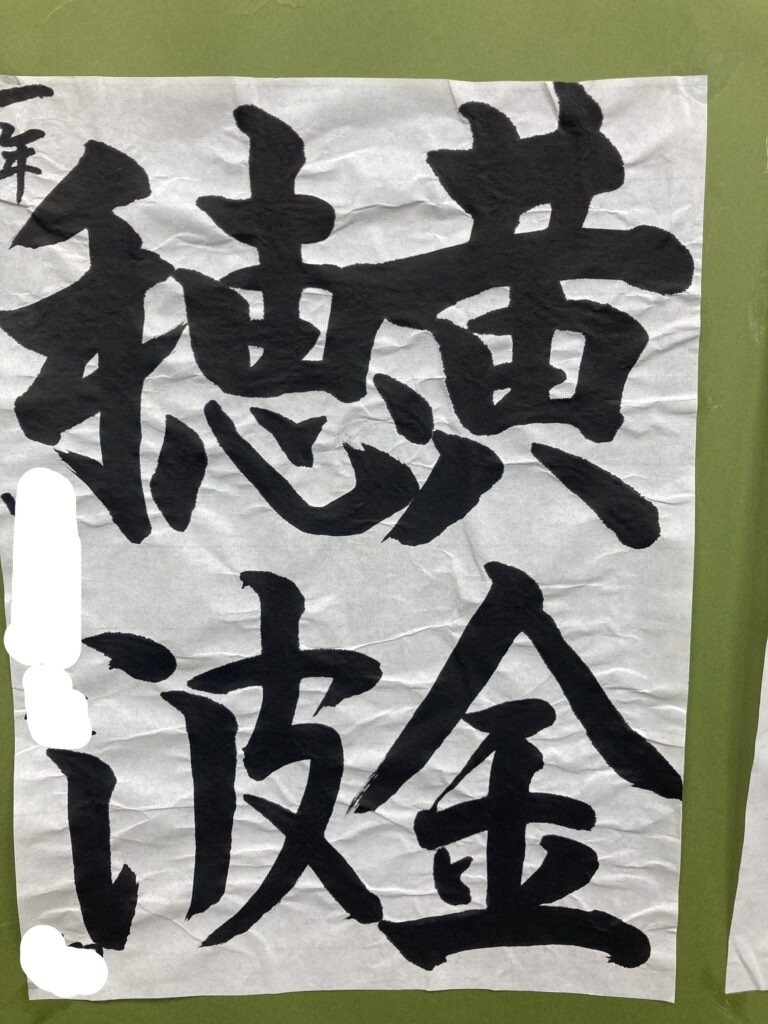 黄金
穂波
一年